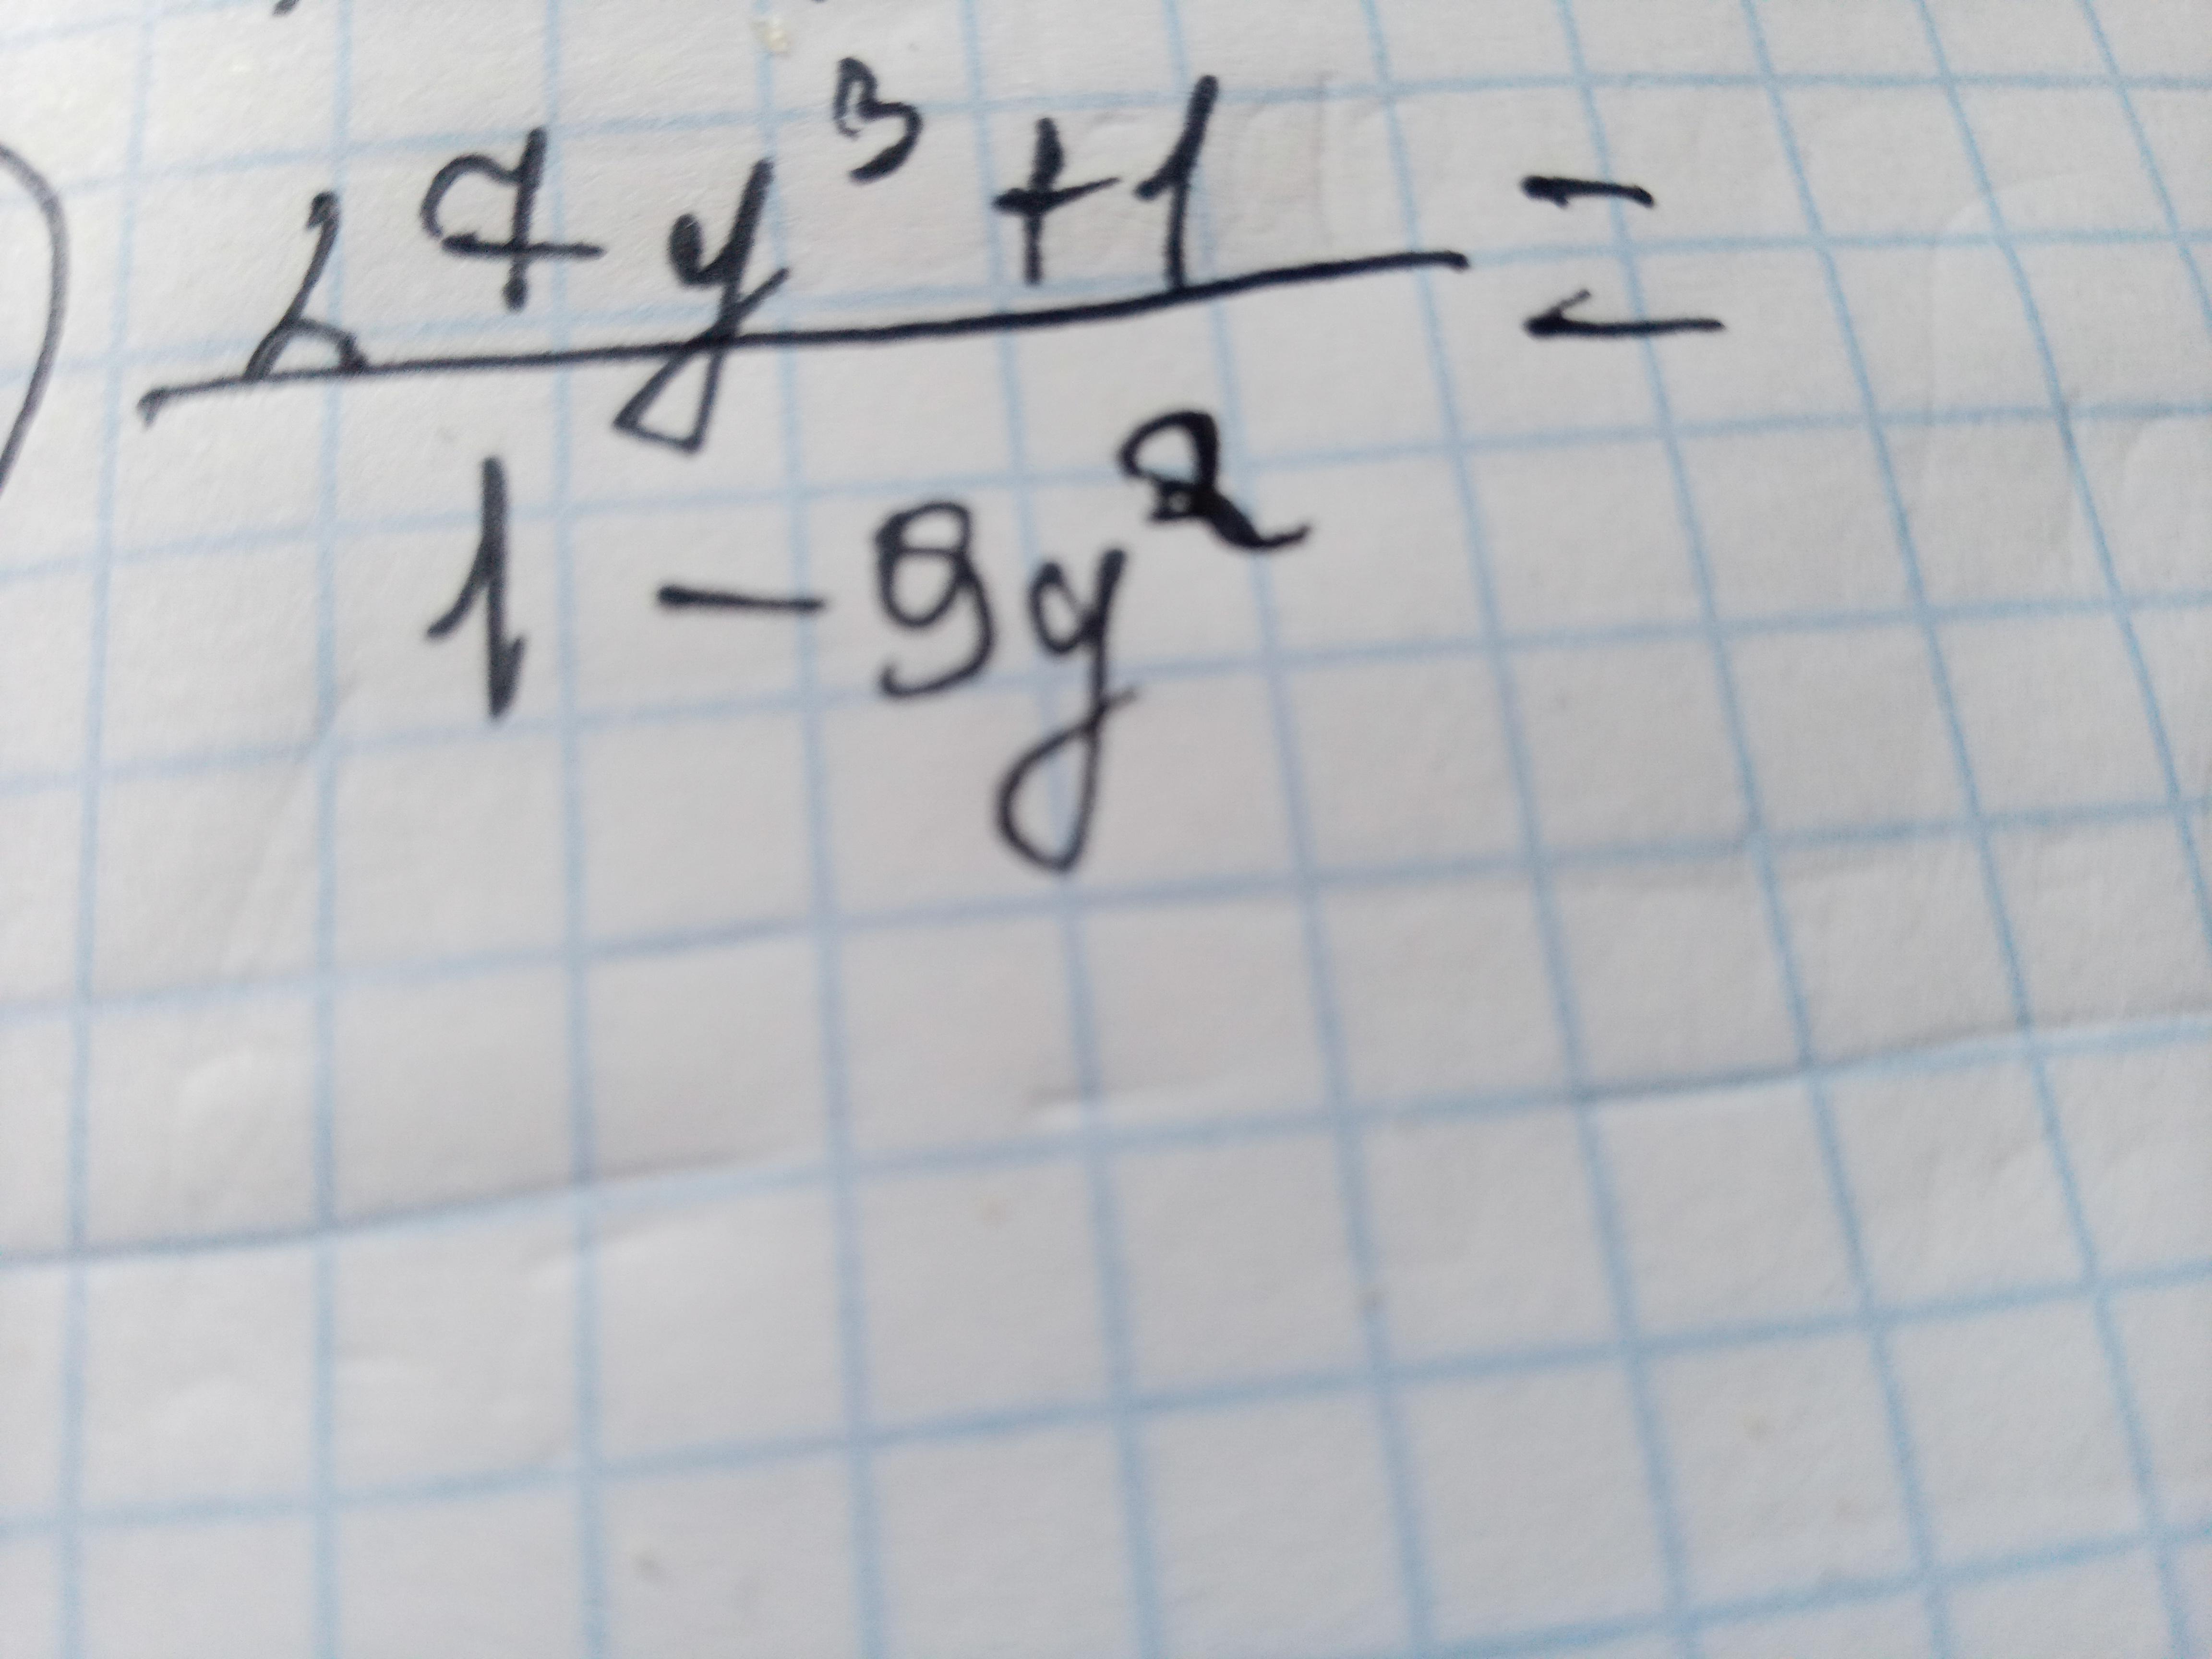 27y³+1 =
1-9y²